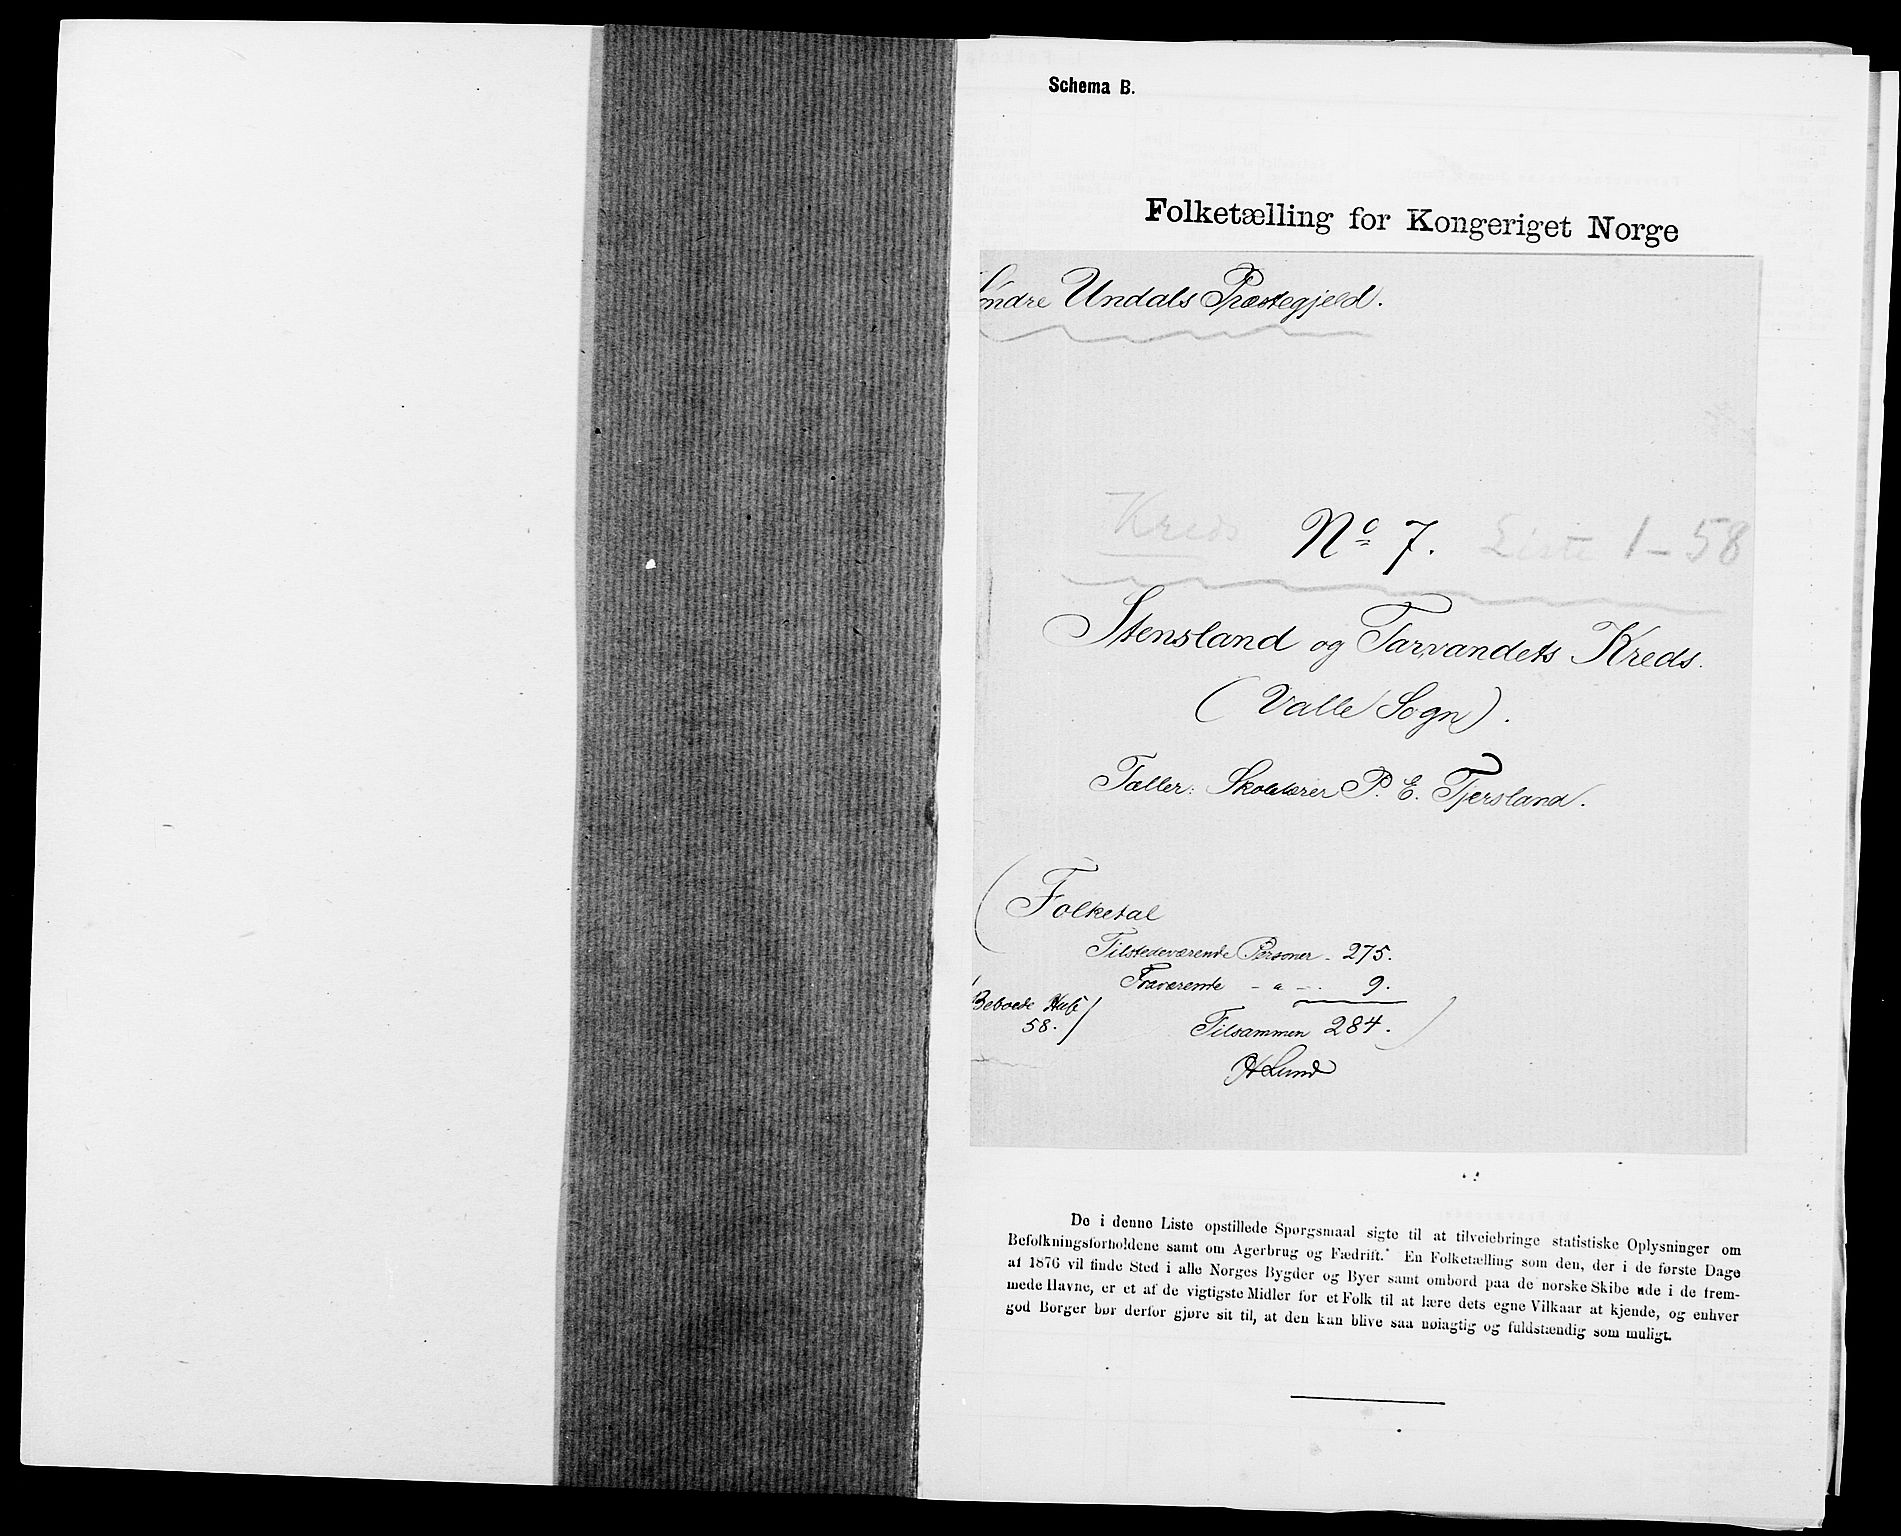 Schema B.
Folketælling for Kongeriget Norge
Søndre Undals Præstegjeld.
Kreds No 7. Liste 1-58
Stensland og Tarvandets Kreds.
(Valle Sogn).
Tæller: Skolelærer P. E. Tjersland.
(Folketal
Tilstedeværende Personer - 275.
Fraværende - " - 9.
Beboede Huse
58.)
Tilsammen 284.)
Lund
De i denne Liste opstillede Spørgsmaal sigte til at tilveiebringe statistiske Oplysninger om
Befolkningsforholdene samt om Agerbrug og Fædrift. En Folketælling som den, der i de første Dage
af 1876 vil finde Sted i alle Norges Bygder og Byer samt ombord paa de norske Skibe ude i de frem-
mede Havne, er et af de vigtigste Midler for et Folk til at lære dets egne Vilkaar at kjende, og enhver
god Borger bør derfor gjøre sit til, at den kan blive saa nøiagtig og fuldstændig som muligt.